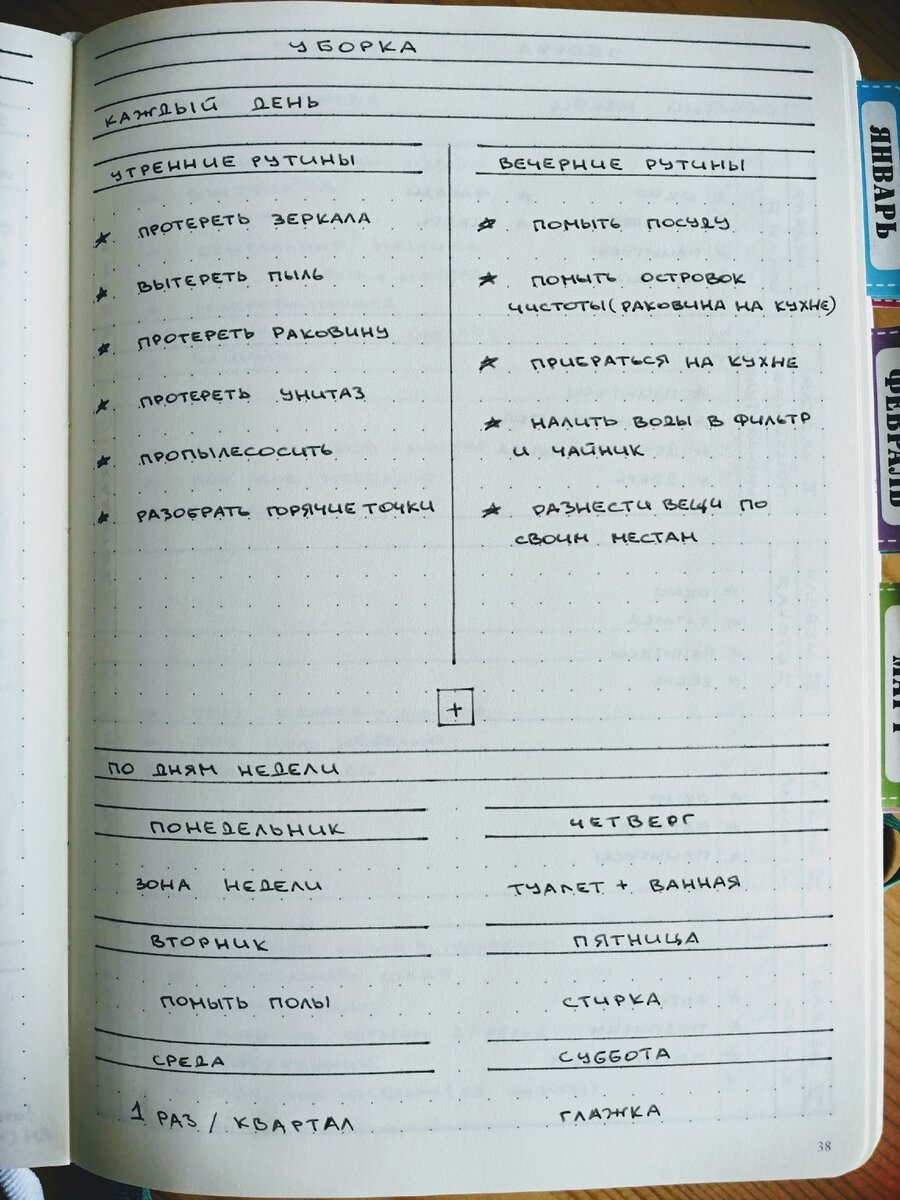 УБОРКА
КАЖДЫЙ ДЕНЬ
УТРЕННИЕ РУТИНЫ
ПРОТЕРЕТЬ ЗЕРКАЛА
ВЫТЕРЕТЬ ПЫЛЬ
ПРОТЕРЕТЬ РАКОВИНУ
ПРОТЕРЕТЬ УНИТАЗ
ПРОПЫЛЕСОСИТЬ
РАЗОБРАТЬ ГОРЯЧИЕ ТОЧКИ
ВЕЧЕРНИЕ РУТИНЫ
ПОМЫТЬ ПОСУДУ
ПОМЫТЬ ОСТРОВОК
ЧИСТОТЫ (РАКОВИНА НА КУХНЕ)
ПРИБРАТЬСЯ НА КУХНЕ
НАЛИТЬ ВОДЫ В ФИЛЬТР
И ЧАЙНИК
РАЗНЕСТИ ВЕЩИ ПО
СВОИМ МЕСТАМ
+
ПО ДНЯМ НЕДЕЛИ
ПОНЕДЕЛЬНИК
ЗОНА НЕДЕЛИ
ВТОРНИК
ПОМЫТЬ ПОЛЫ
СРЕДА
1 РАЗ / КВАРТАЛ
ЧЕТВЕРГ
ТУАЛЕТ + ВАННАЯ
ПЯТНИЦА
СТИРКА
СУББОТА
ГЛАЖКА
38
ЯНВАРЬ
ФЕВРАЛЬ
МАРТ